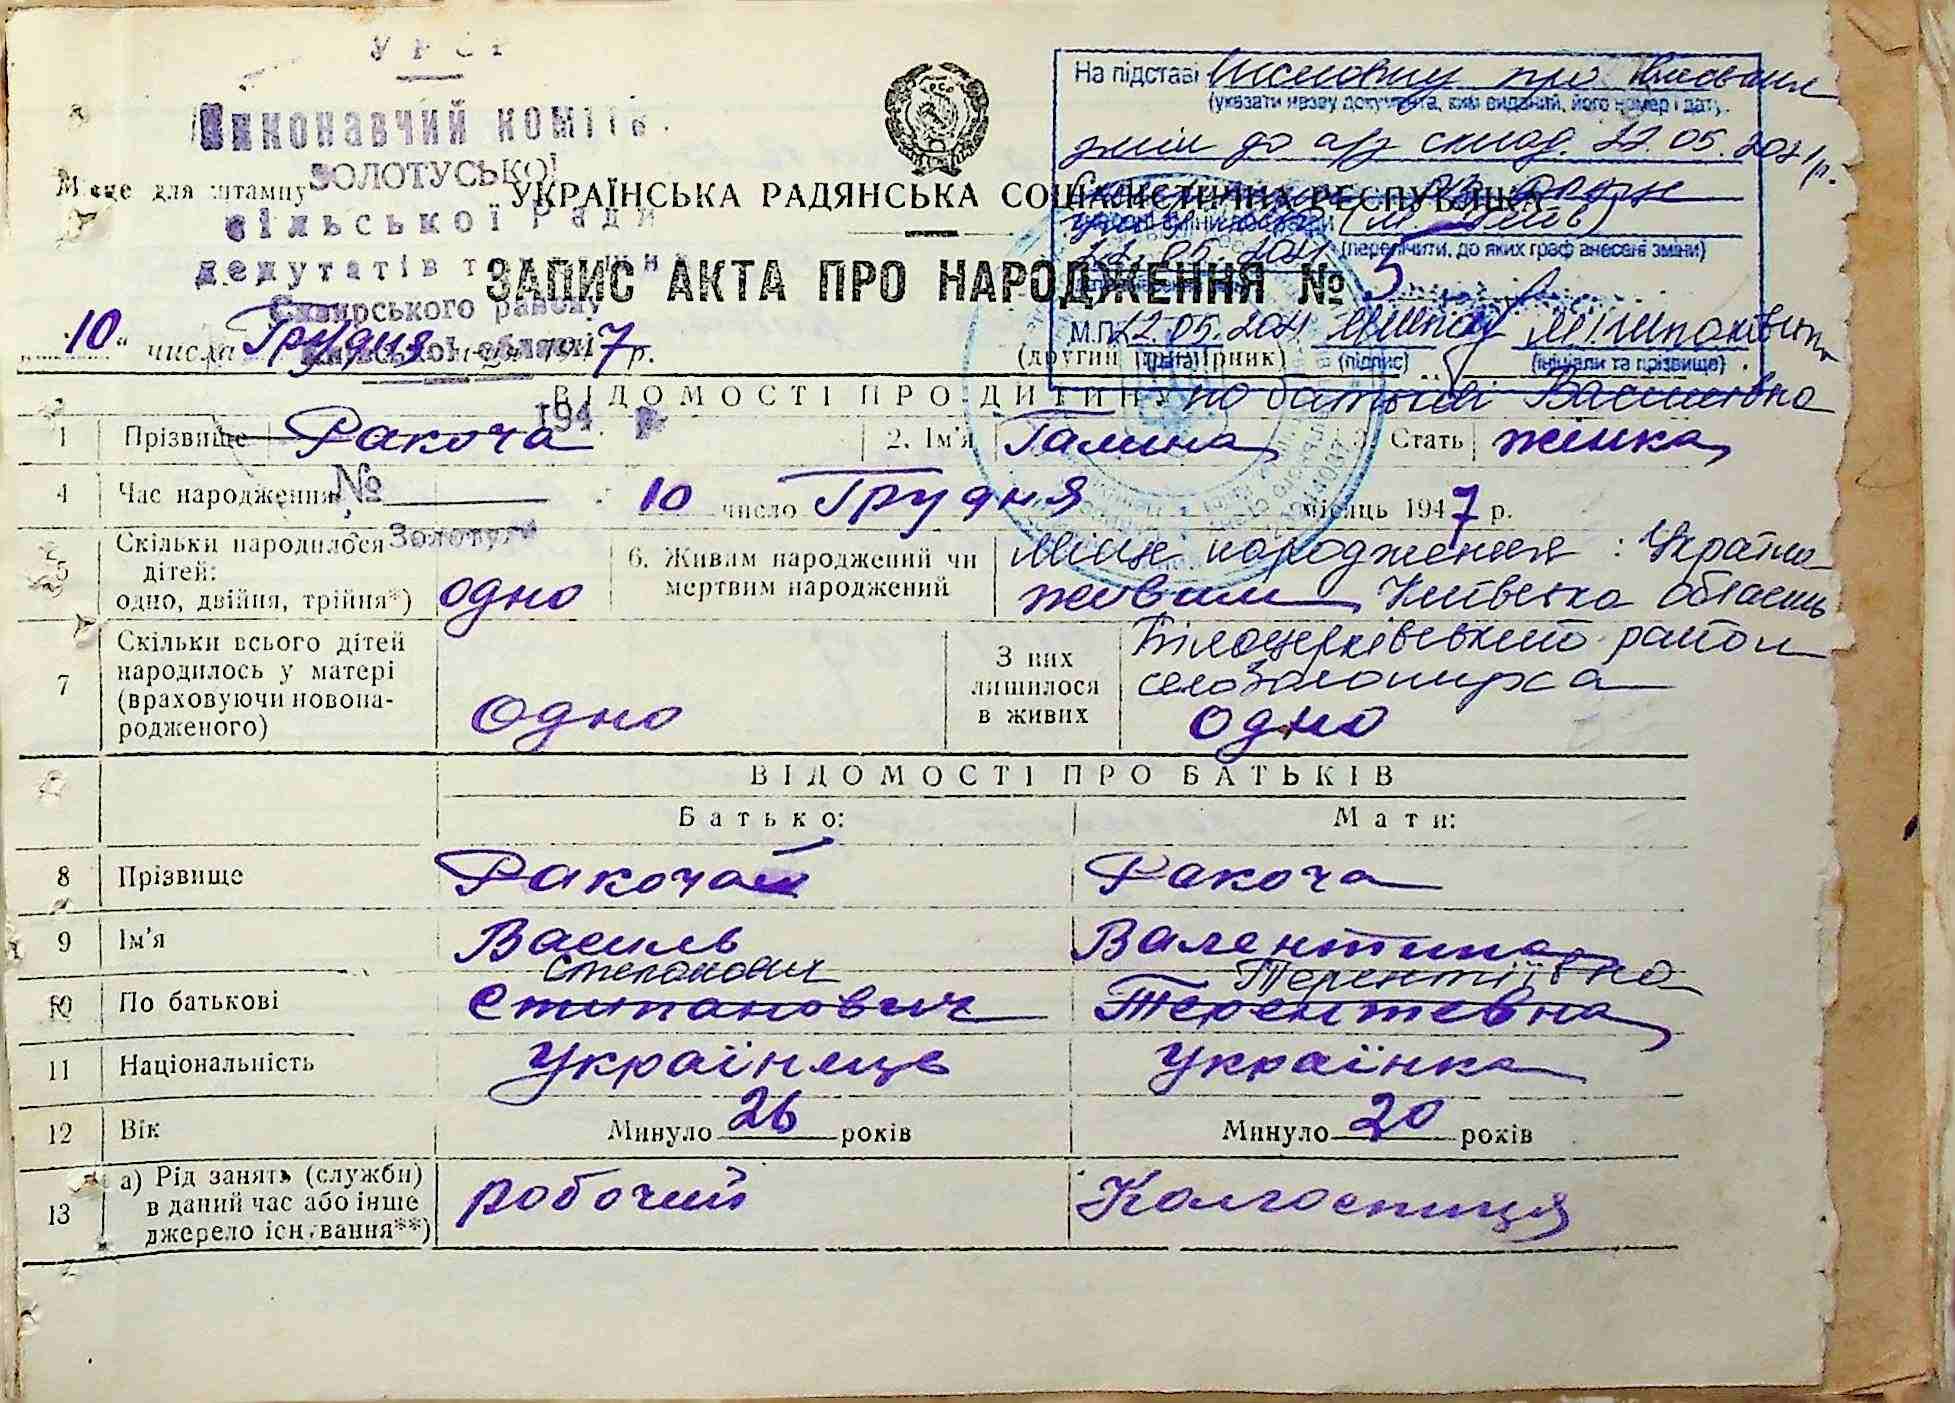 УРСР
Виконавчий комітет
Місце для штампу ЗОЛОТУСЬКОЇ
сільської Ради
депутатів
Сквирського району
Київської області
194 р.
№
Золотуги
На підставі Висновку про внесення
(указати назву документа, ким виданий, його номер і дату)
змін до а/з склад. 22.05.2021р.
22.05.2021 (перелічити, до яких граф внесені зміни)
М.П. 22.05.2021
(підпис) (ініціали та прізвище)
УКРАЇНСЬКА РАДЯНСЬКА СОЦІАЛІСТИЧНА РЕСПУБЛІКА
ЗАПИС АКТА ПРО НАРОДЖЕННЯ № 5
„10“ числа Грудня м-ця 1947 р. (другий примірник)
ВІДОМОСТІ ПРО ДИТИНУ по батькові Василівна
1 Прізвище Ракоча 2. Ім'я Галина 3. Стать жінка
4 Час народження 10 число Грудня місяць 1947 р.
5 Скільки народилося дітей: одно, двійня, трійня*) одно 6. Живим народжений чи мертвим народжений живим
Місце народження: Україна
Київська область
Білоцерківський район
село
7 Скільки всього дітей народилось у матері (враховуючи новонародженого) Одно З них лишилося в живих одно
ВІДОМОСТІ ПРО БАТЬКІВ
Батько: Мати:
8 Прізвище Ракочай Ракоча
9 Ім'я Василь Валентина
Степанович Терентіївна
10 По батькові Стипанович Терентевна
11 Національність Українець Українка
12 Вік Минуло 26 років Минуло 20 років
13 а) Рід занять (служби) в даний час або інше джерело існування**) робочий Колгосниця